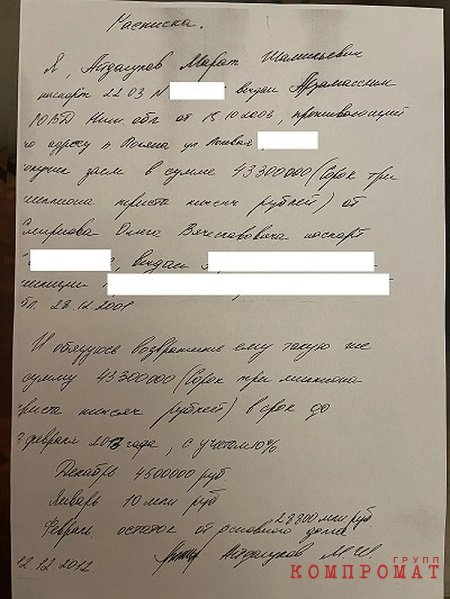 Расписка.
Я, Айдагулов Марат Шамильевич
паспорт 22 03 N выдан Арзамасским
ЮВД Ниж. обл от 15.10.2003, проживающий
го адресу п Поляна ул Новая,
олучил заем в сумме 43300000 (Сорок три
миллиона триста тысяч рублей) от
Смирнова Олега Вячеславовича паспорт
, выдан
28.12.2009
И обязуюсь возвратить ему такую же
сумму 43300000 (Сорок три миллиона
триста тысяч рублей) в срок до
февраля 2013 года, с учетом 10%
Декабрь 4500000 руб.
Январь 10 млн руб
28800 млн руб
Февраль остаток от основного долга
12.12.2012 М.Ш.
ГРУПП
КОМПРОМАТ